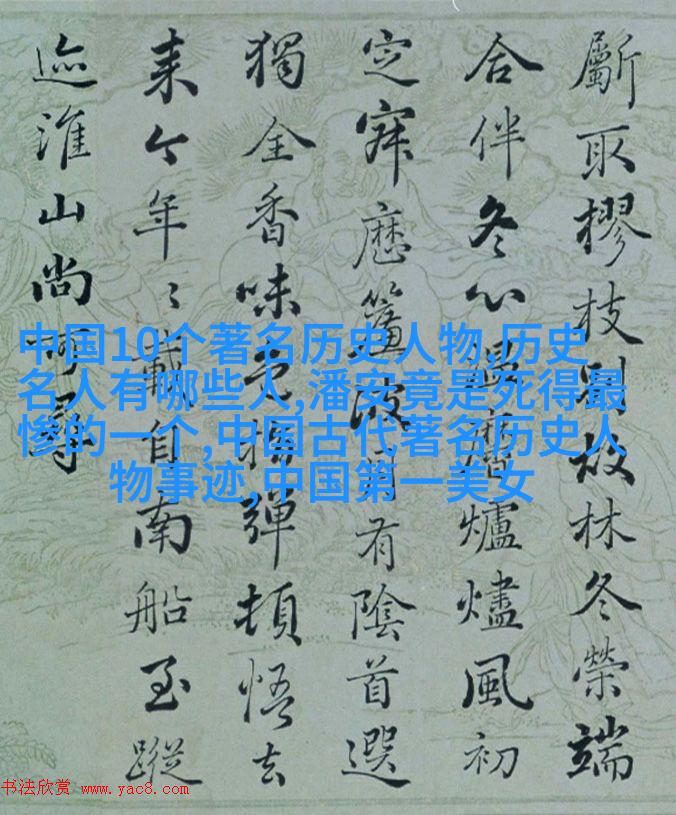 斸取樛枝別故林冬榮端
合伴冬心爐燼風初
定寂歷簾波月有陰首選
獨全香味色彈頓悟去
来今年〻載自南船至蹤
迹淮山尚可尋
中国10个著名历史人物,历史
名人有哪些人,潘安竟是死得最
惨的一个,中国古代著名历史人
物事迹,中国第一美女
书法欣赏 www.yac8.com